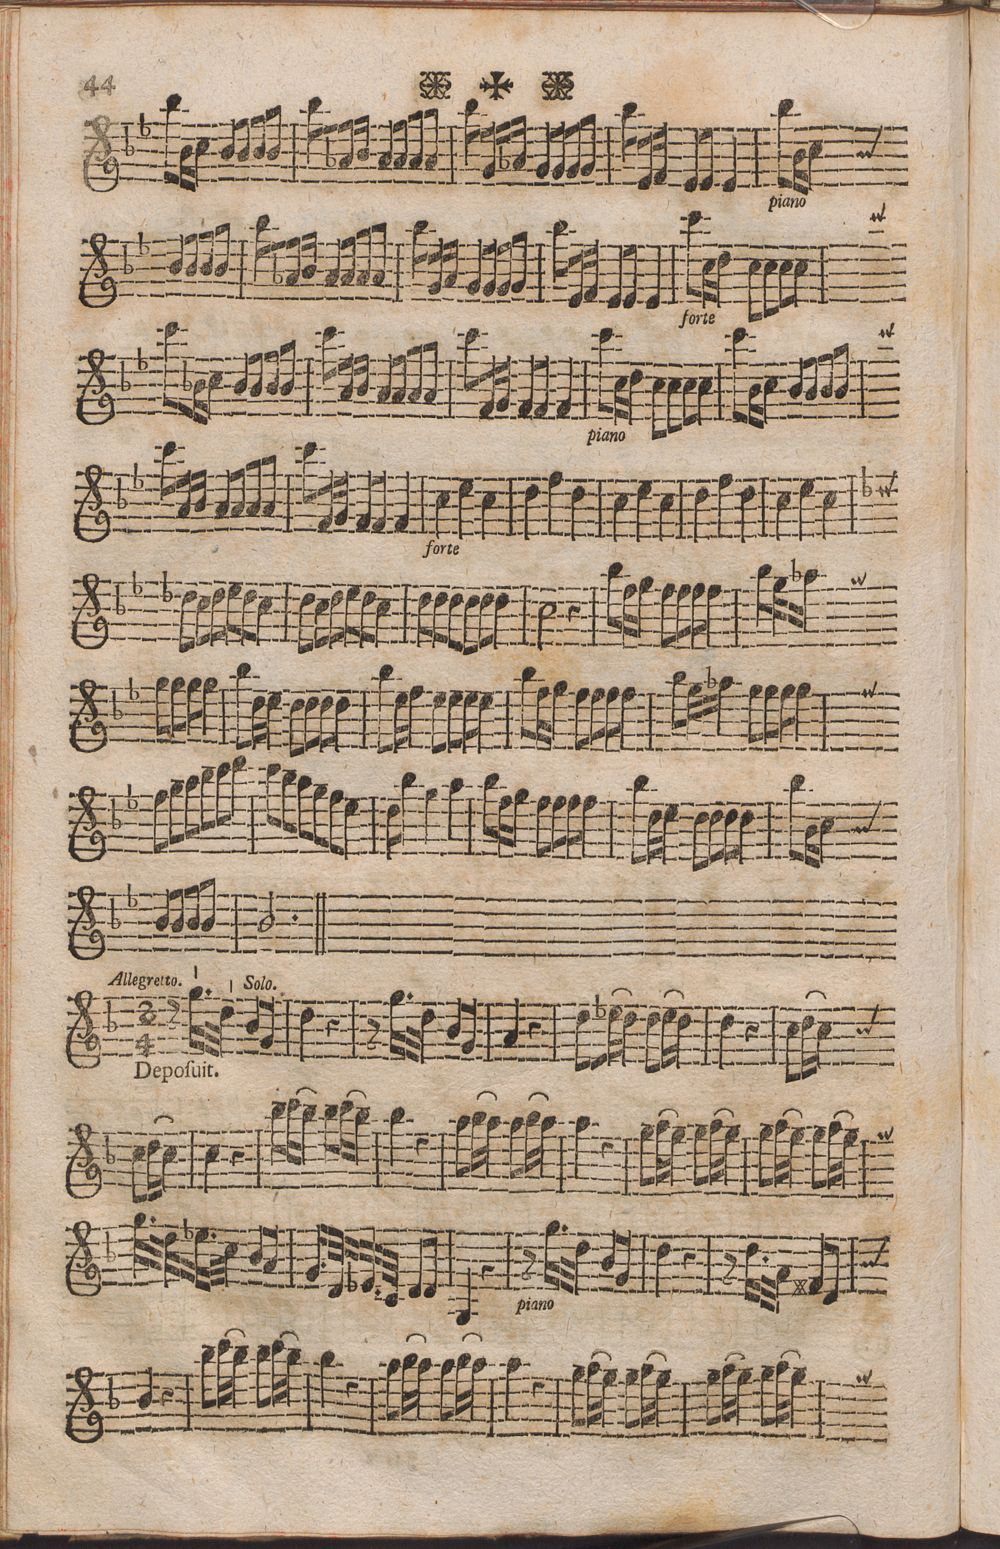 44
piano
forte
piano
forte
Allegretto. Solo.
2
4
Deposuit.
piano